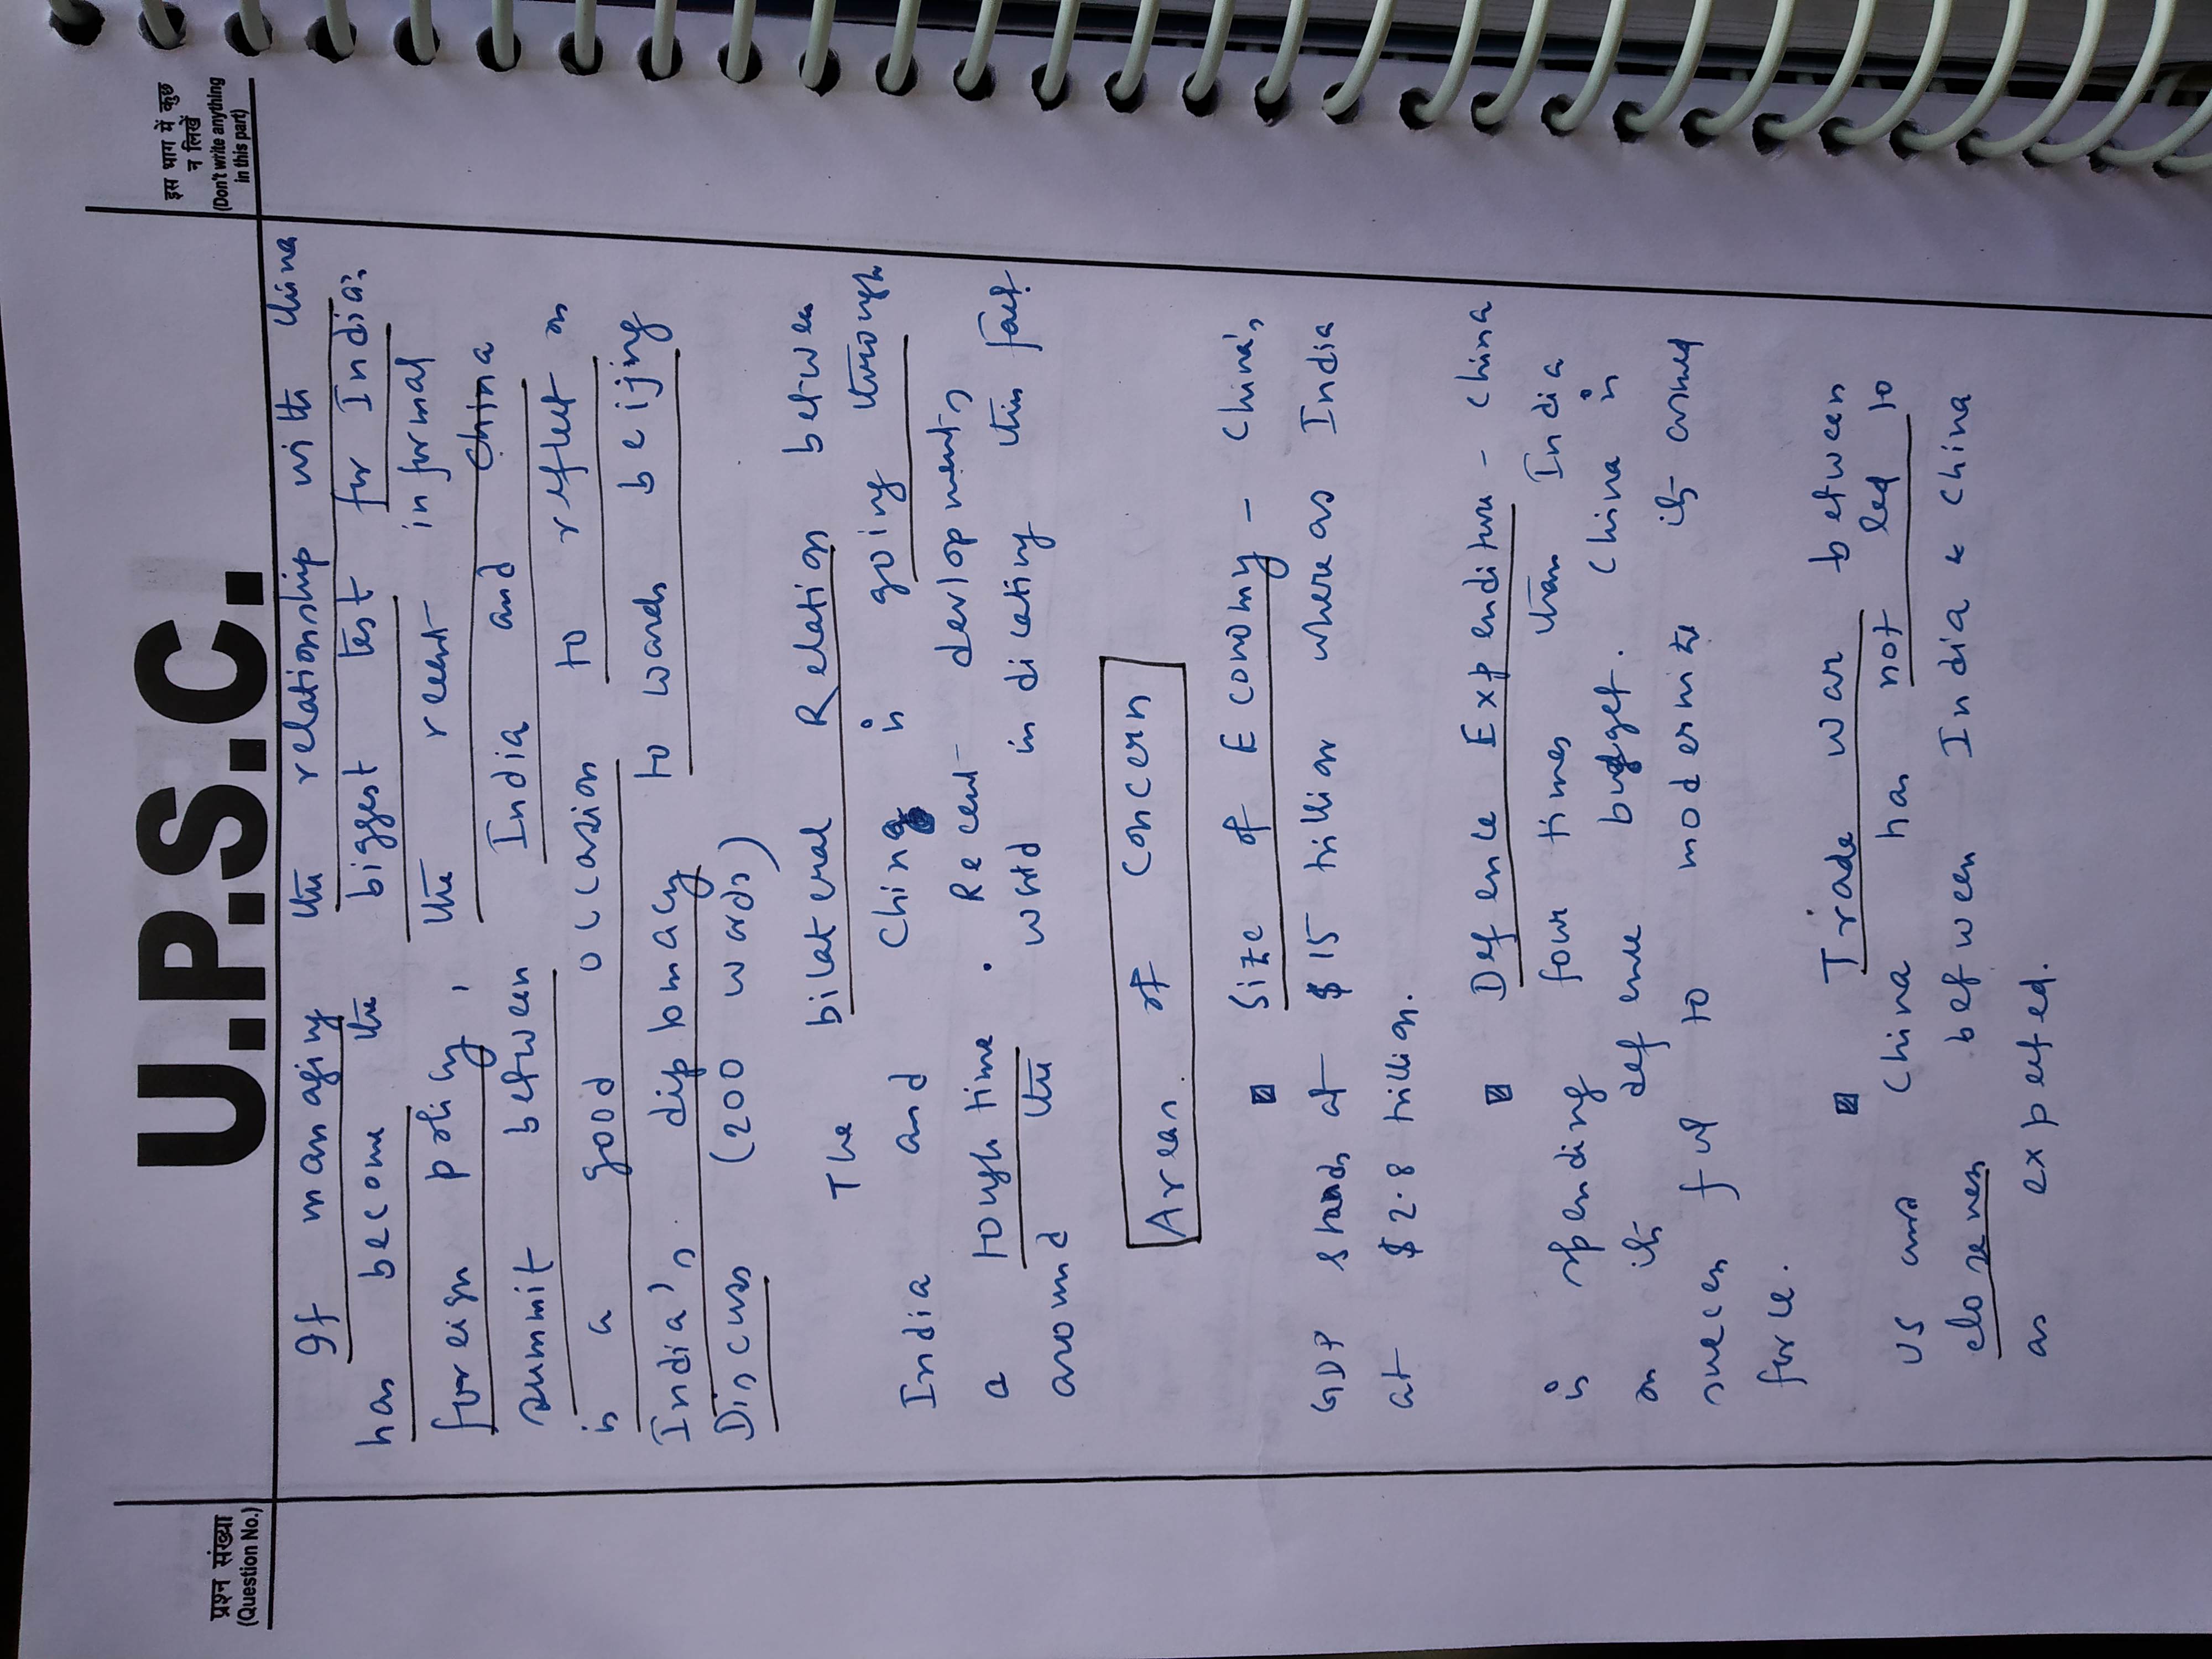 U.P.S.C.
प्रश्न संख्या
(Question No.)
इस भाग में कुछ
न लिखें
(Don't write anything
in this part)
If managing the relationship with China
has become the biggest test for India's
foreign policy, the recent informal
summit between India and China
is a good occasion to reflect on
India's diplomacy towards beijing
Discuss (200 words)
The bilateral Relation between
India and China is going through
a tough time. Recent developments
around the world indicating this fact.
Areas of Concern
Size of Economy - China's
GDP stands at $15 trillion where as India
at $2.8 trillion.
Defence Expenditure - China
is spending four times than India
on its defence budget. China is
succesful to modernize its armed
force.
Trade war between
US and China has not led to
closeness between India & China
as expected.